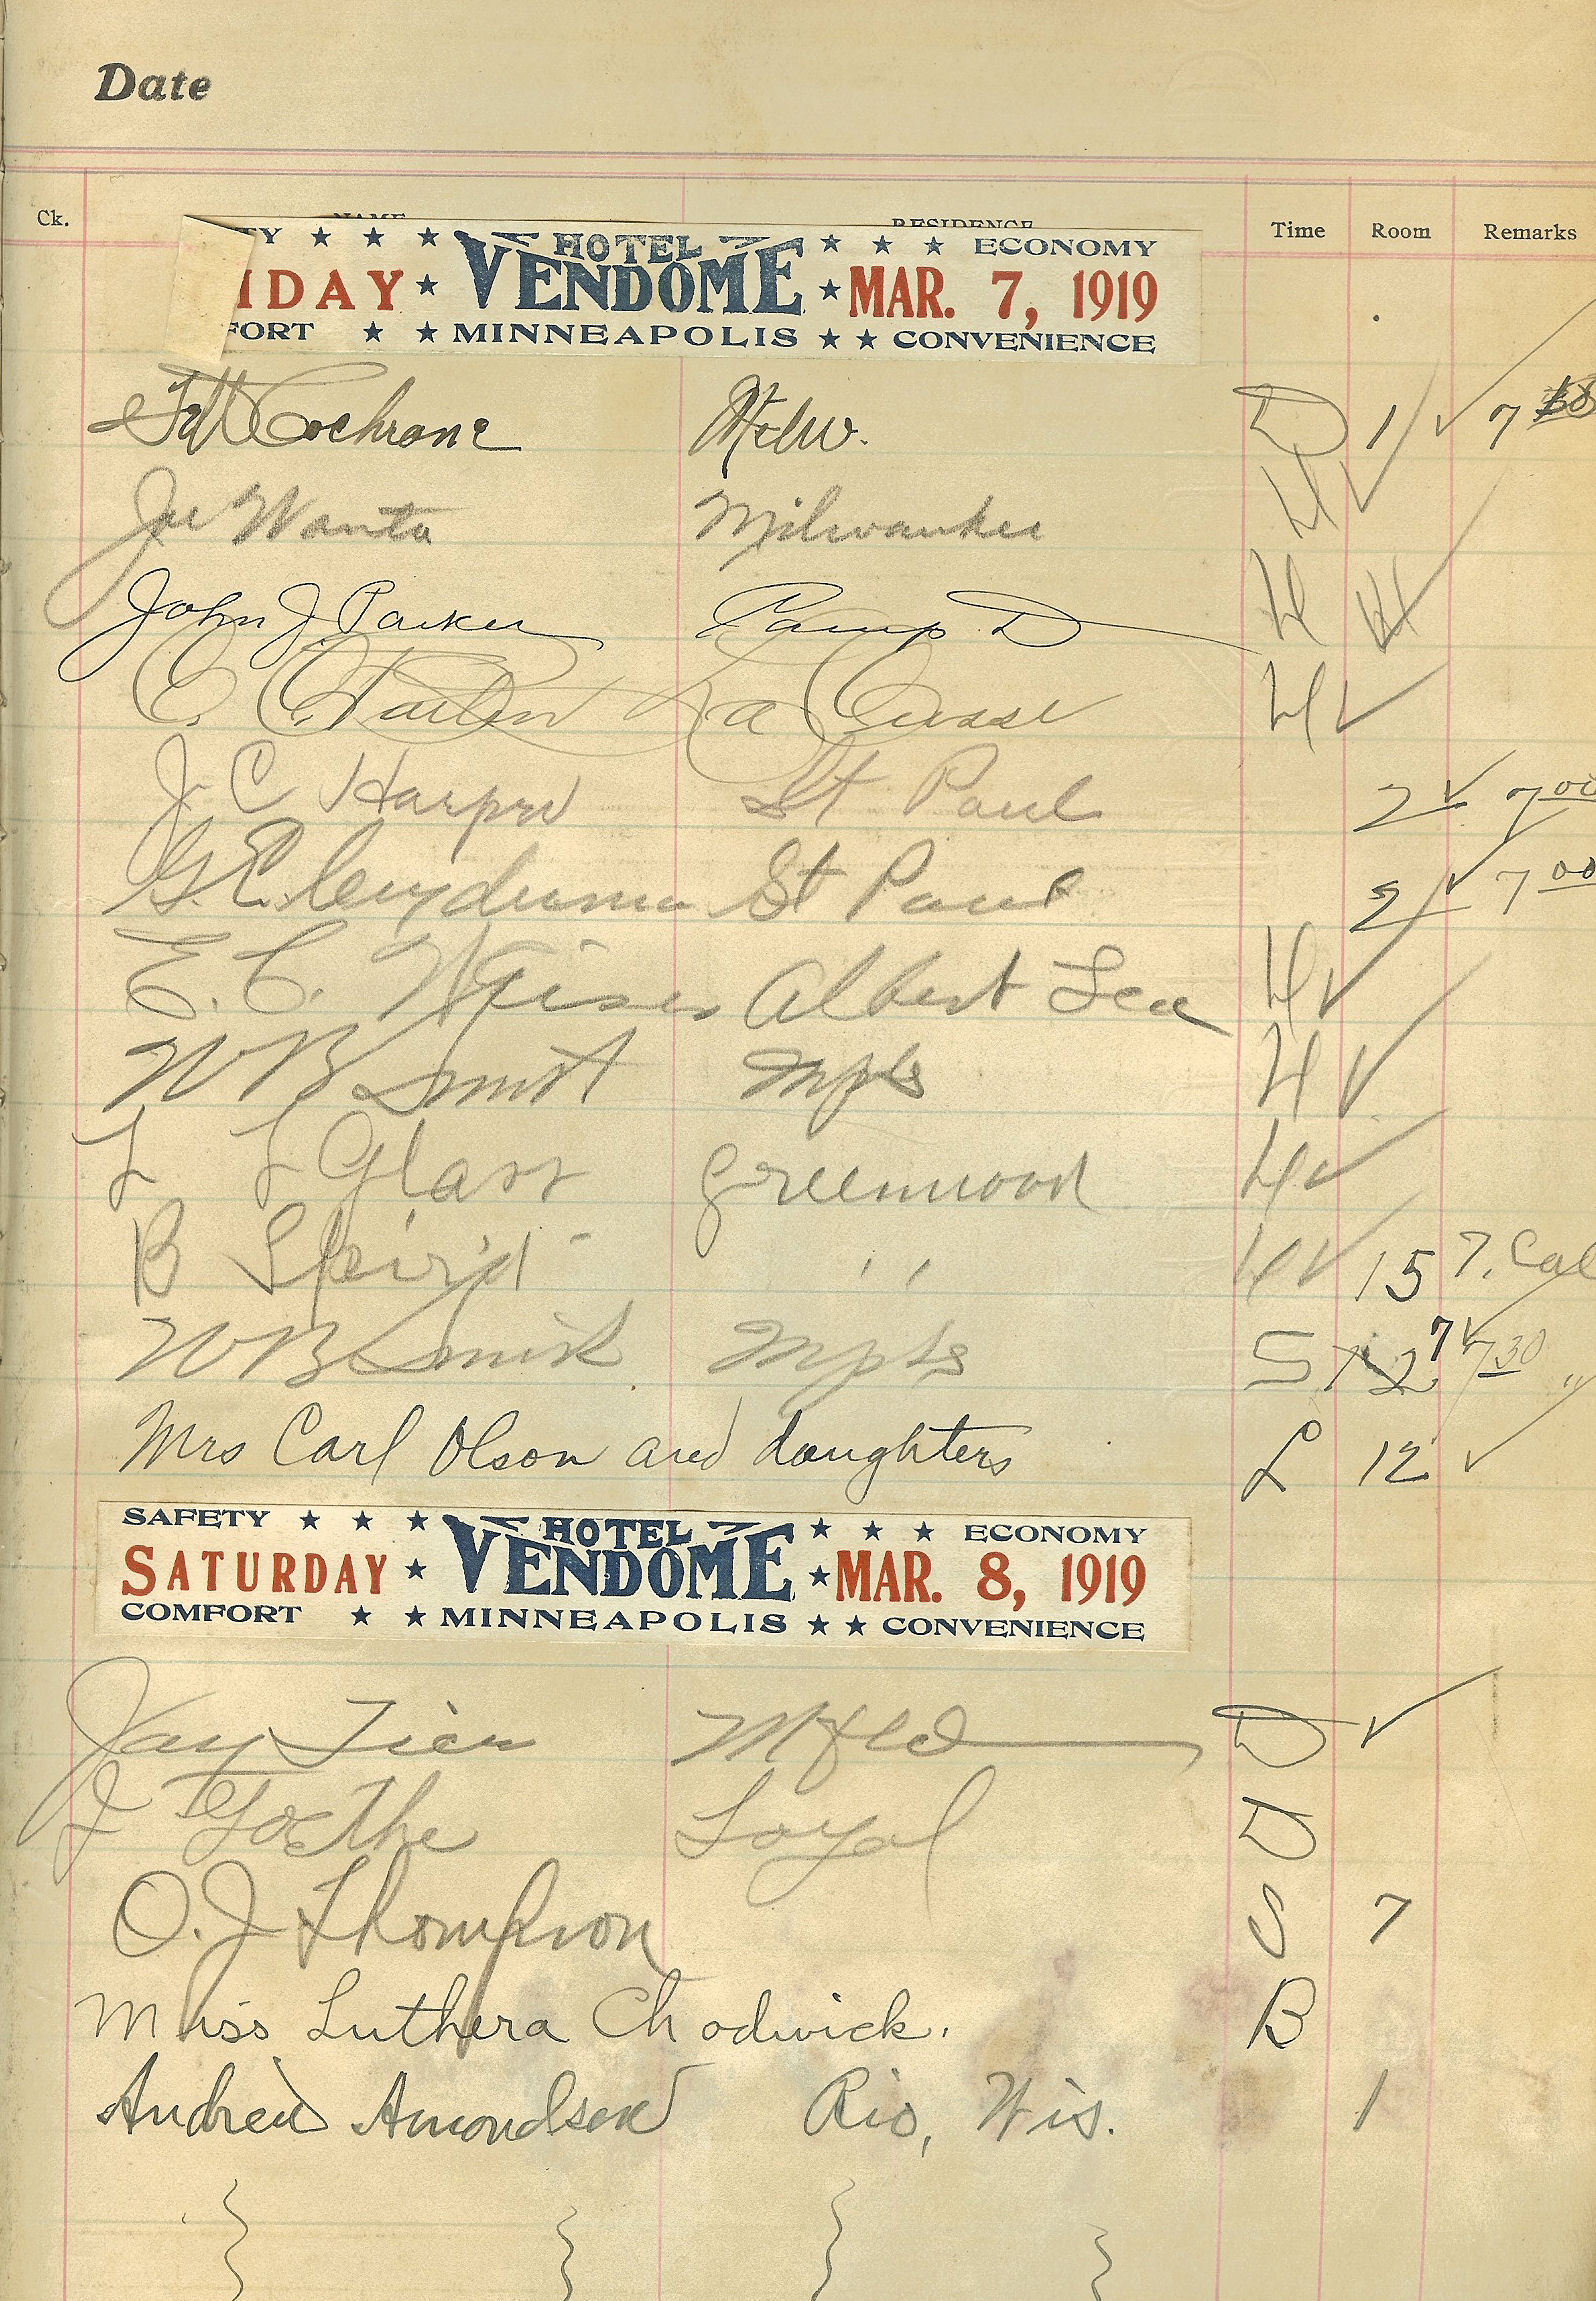 Date
Ck. NAME RESIDENCE Time Room Remarks
TY ★ ★ ★ HOTEL ★ ★ ★ ECONOMY
IDAY ★ VENDOME ★ MAR. 7, 1919
FORT ★ ★ MINNEAPOLIS ★ ★ CONVENIENCE
Cochrane D 1 ✓ 7
Joe Wanta Milwaukee H ✓
John J Parker Camp D H
C. La Crosse H ✓
J. C Harper St Paul 2 ✓ 7 00
G. E. St Paul 2 ✓ 7 00
E. C. Albert Lea H ✓
W B Smith Mpls H ✓
L L Glass Greenwood H ✓
B " H ✓ 15 7. Cal
W B Smith Mpls S 2 7 ✓ 7 30 "
Mrs Carl Olson and daughters L 12 ✓
SAFETY ★ ★ ★ HOTEL ★ ★ ★ ECONOMY
SATURDAY ★ VENDOME ★ MAR. 8, 1919
COMFORT ★ ★ MINNEAPOLIS ★ ★ CONVENIENCE
Jay Tier Mfld D ✓
J Goethe Loyal D
O. J Thompson S 7
Miss Luthera Chadwick. B
Andrew Amondsen Rio, Wis. 1